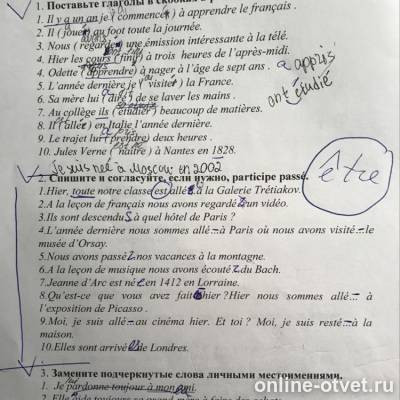 1. Поставьте глаголы в скобках в
1. Il y a un an je ( commencer ) à apprendre le français .
2. Il ( jouer ) au foot toute la journée.
3. Nous ( regarder ) une émission intéressante à la télé.
4. Hier les cours ( finir ) à trois heures de l'après-midi.
4. Odette ( apprendre) à nager à l'âge de sept ans . a appris
5. L'année dernière je ( visiter ) la France.
6. Sa mère lui ( dire ) de se laver les mains .
ont étudié
7. Au collège ils ( étudier ) beaucoup de matières.
8. Il (aller ) en Italie l'année dernière.
9. Le train ( prendre) deux heures .
10. Jules Verne ( naître ) à Nantes en 1828.
Je suis né à Moscou en 2002
2. Спишите и согласуйте, если нужно, participe passé.
être
1.Hier, toute notre classe est allé à la Galerie Trétiakov.
2.A la leçon de français nous avons regardé un vidéo.
3.Ils sont descendu à quel hôtel de Paris ?
4.L'année dernière nous sommes allé à Paris où nous avons visité le
musée d'Orsay.
5.Nous avons passé nos vacances à la montagne.
6.A la leçon de musique nous avons écouté du Bach.
7.Jeanne d'Arc est né en 1412 en Lorraine.
8.Qu'est-ce que vous avez fait hier ? Hier nous sommes allé à
l'exposition de Picasso .
9.Moi, je suis allé au cinéma hier. Et toi ? Moi, je suis resté à la
maison.
10.Elles sont arrivé de Londres.
3. Замените подчеркнутые слова личными местоимениями.
1. Je pardonne toujours à mon ami.
online-otvet.ru